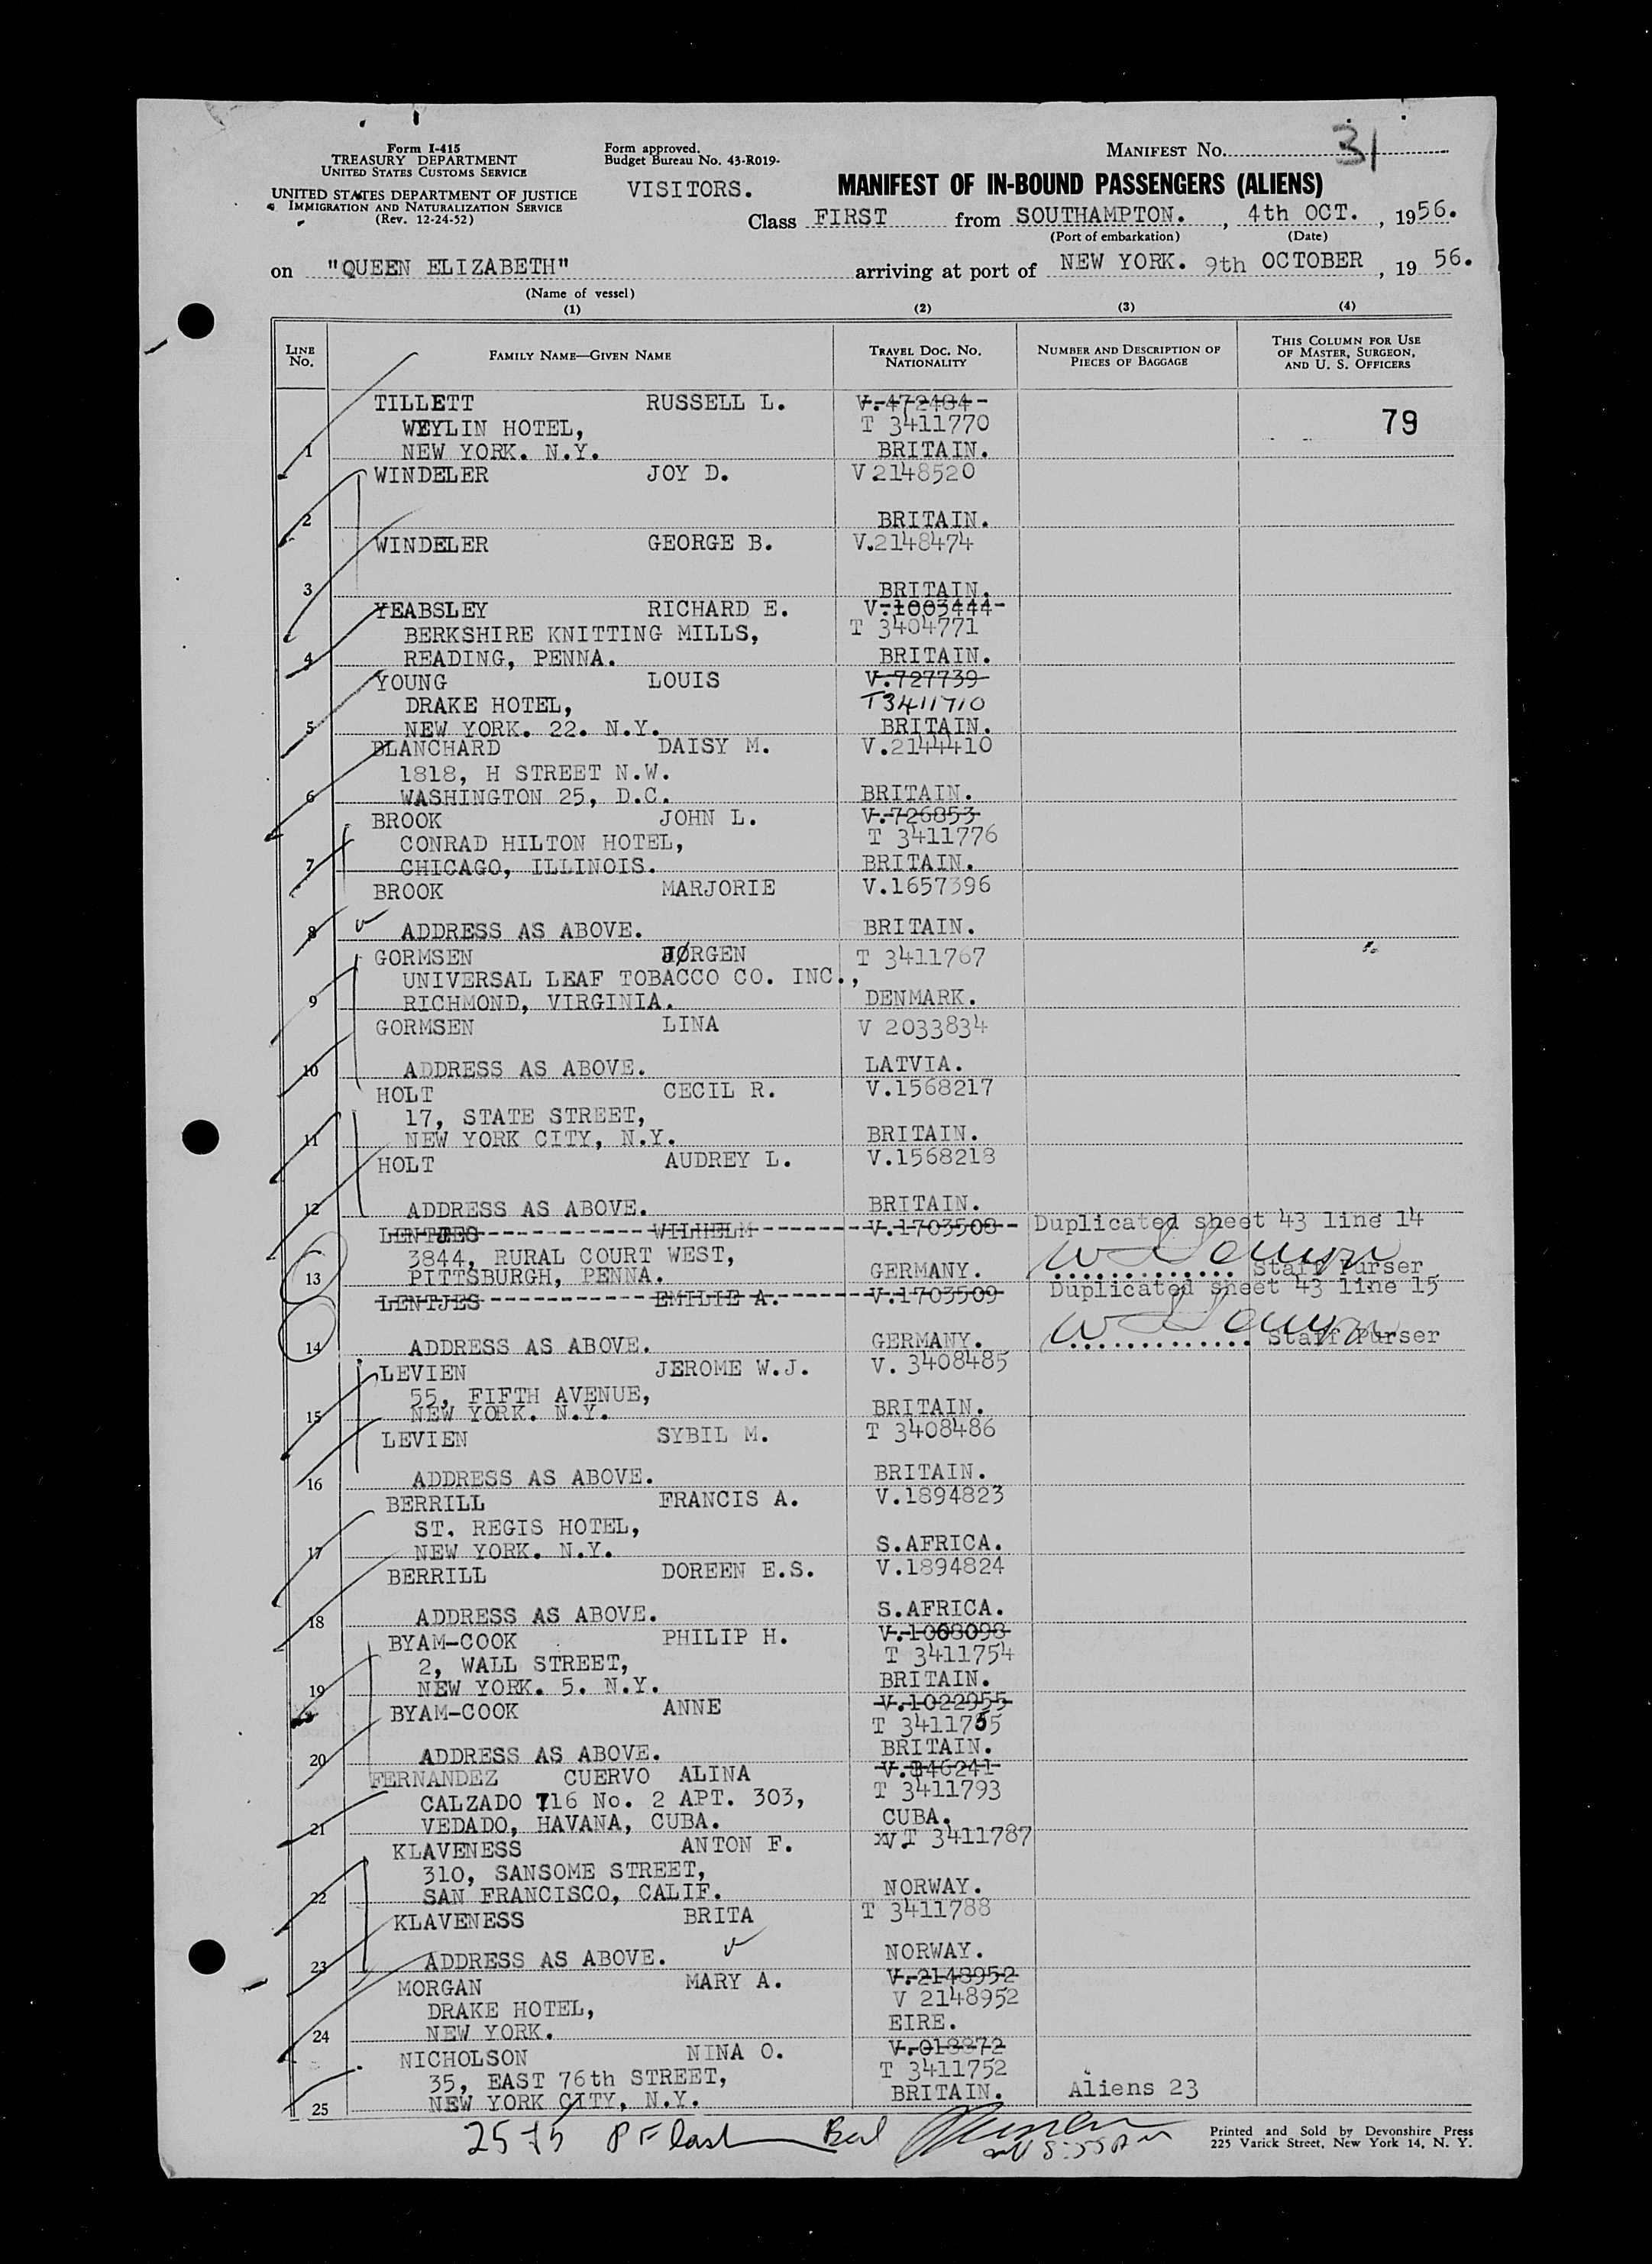 Form I-415
TREASURY DEPARTMENT
UNITED STATES CUSTOMS SERVICE
UNITED STATES DEPARTMENT OF JUSTICE
IMMIGRATION AND NATURALIZATION SERVICE
(Rev. 12-24-52)
Form approved.
Budget Bureau No. 43-R019-
VISITORS.
MANIFEST NO. 31
MANIFEST OF IN-BOUND PASSENGERS (ALIENS)
Class FIRST from SOUTHAMPTON. , 4th OCT. , 1956.
(Port of embarkation) (Date)
on "QUEEN ELIZABETH" arriving at port of NEW YORK. 9th OCTOBER , 19 56.
(Name of vessel)
(1) (2) (3) (4)
LINE NO. FAMILY NAME—GIVEN NAME TRAVEL DOC. NO. NATIONALITY NUMBER AND DESCRIPTION OF PIECES OF BAGGAGE THIS COLUMN FOR USE OF MASTER, SURGEON, AND U. S. OFFICERS
TILLETT RUSSELL L. V.472484
WEYLIN HOTEL, T 3411770 79
1 NEW YORK. N.Y. BRITAIN.
WINDELER JOY D. V2148520
2 BRITAIN.
WINDELER GEORGE B. V.2148474
3 BRITAIN.
YEABSLEY RICHARD E. V.1003444
BERKSHIRE KNITTING MILLS, T 3404771
4 READING, PENNA. BRITAIN.
YOUNG LOUIS V.727739
DRAKE HOTEL, T3411710
5 NEW YORK. 22. N.Y. BRITAIN.
BLANCHARD DAISY M. V.2144410
1818, H STREET N.W.
6 WASHINGTON 25, D.C. BRITAIN.
BROOK JOHN L. V.726853
CONRAD HILTON HOTEL, T 3411776
7 CHICAGO, ILLINOIS. BRITAIN.
BROOK MARJORIE V.1657396
8 ADDRESS AS ABOVE. BRITAIN.
GORMSEN JØRGEN T 3411767
UNIVERSAL LEAF TOBACCO CO. INC.,
9 RICHMOND, VIRGINIA. DENMARK.
GORMSEN LINA V 2033834
10 ADDRESS AS ABOVE. LATVIA.
HOLT CECIL R. V.1568217
17, STATE STREET,
11 NEW YORK CITY, N.Y. BRITAIN.
HOLT AUDREY L. V.1568218
12 ADDRESS AS ABOVE. BRITAIN.
LENTJES WILHELM V.1703508 Duplicated sheet 43 line 14
3844, RURAL COURT WEST,
13 PITTSBURGH, PENNA. GERMANY. Staff Purser
LENTJES EMILIE A. V.1703509 Duplicated sheet 43 line 15
14 ADDRESS AS ABOVE. GERMANY. Staff Purser
LEVIEN JEROME W.J. V. 3408485
55, FIFTH AVENUE,
15 NEW YORK. N.Y. BRITAIN.
LEVIEN SYBIL M. T 3408486
16 ADDRESS AS ABOVE. BRITAIN.
BERRILL FRANCIS A. V.1894823
ST. REGIS HOTEL,
17 NEW YORK. N.Y. S.AFRICA.
BERRILL DOREEN E.S. V.1894824
18 ADDRESS AS ABOVE. S.AFRICA.
BYAM-COOK PHILIP H. V.1068098
2, WALL STREET, T 3411754
19 NEW YORK. 5. N.Y. BRITAIN.
BYAM-COOK ANNE V.1022955
T 3411755
20 ADDRESS AS ABOVE. BRITAIN.
FERNANDEZ CUERVO ALINA V.346241
CALZADO 716 No. 2 APT. 303, T 3411793
21 VEDADO, HAVANA, CUBA. CUBA.
KLAVENESS ANTON F. T 3411787
310, SANSOME STREET,
22 SAN FRANCISCO, CALIF. NORWAY.
KLAVENESS BRITA T 3411788
23 ADDRESS AS ABOVE. NORWAY.
MORGAN MARY A. V.2148952
DRAKE HOTEL, V 2148952
24 NEW YORK. EIRE.
NICHOLSON NINA O. V.018872
35, EAST 76th STREET, T 3411752
25 NEW YORK CITY, N.Y. BRITAIN. Aliens 23
Printed and Sold by Devonshire Press
225 Varick Street, New York 14, N. Y.